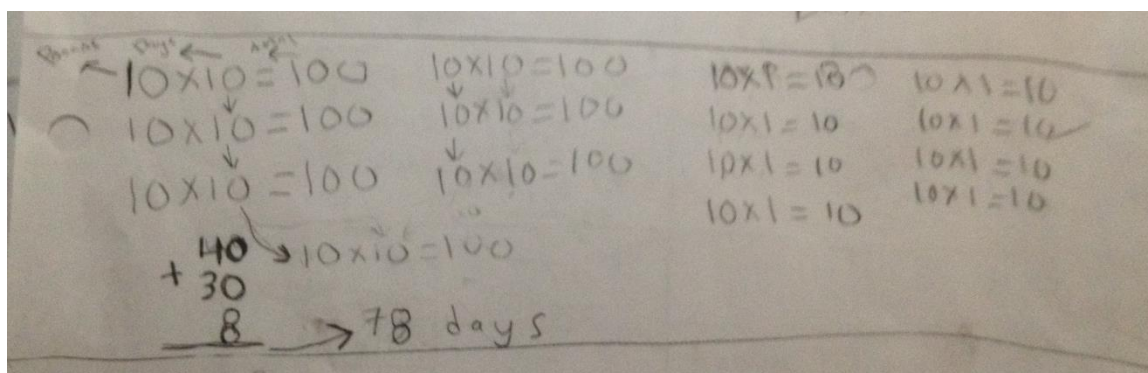 Days
10×10=100 10×10=100 10×1=10 10×1=10
10×10=100 10×10=100 10×1=10 10×1=10
10×10=100 10×10=100 10×1=10 10×1=10
10×1=10 10×1=10
40 10×10=100
+ 30
8 78 days